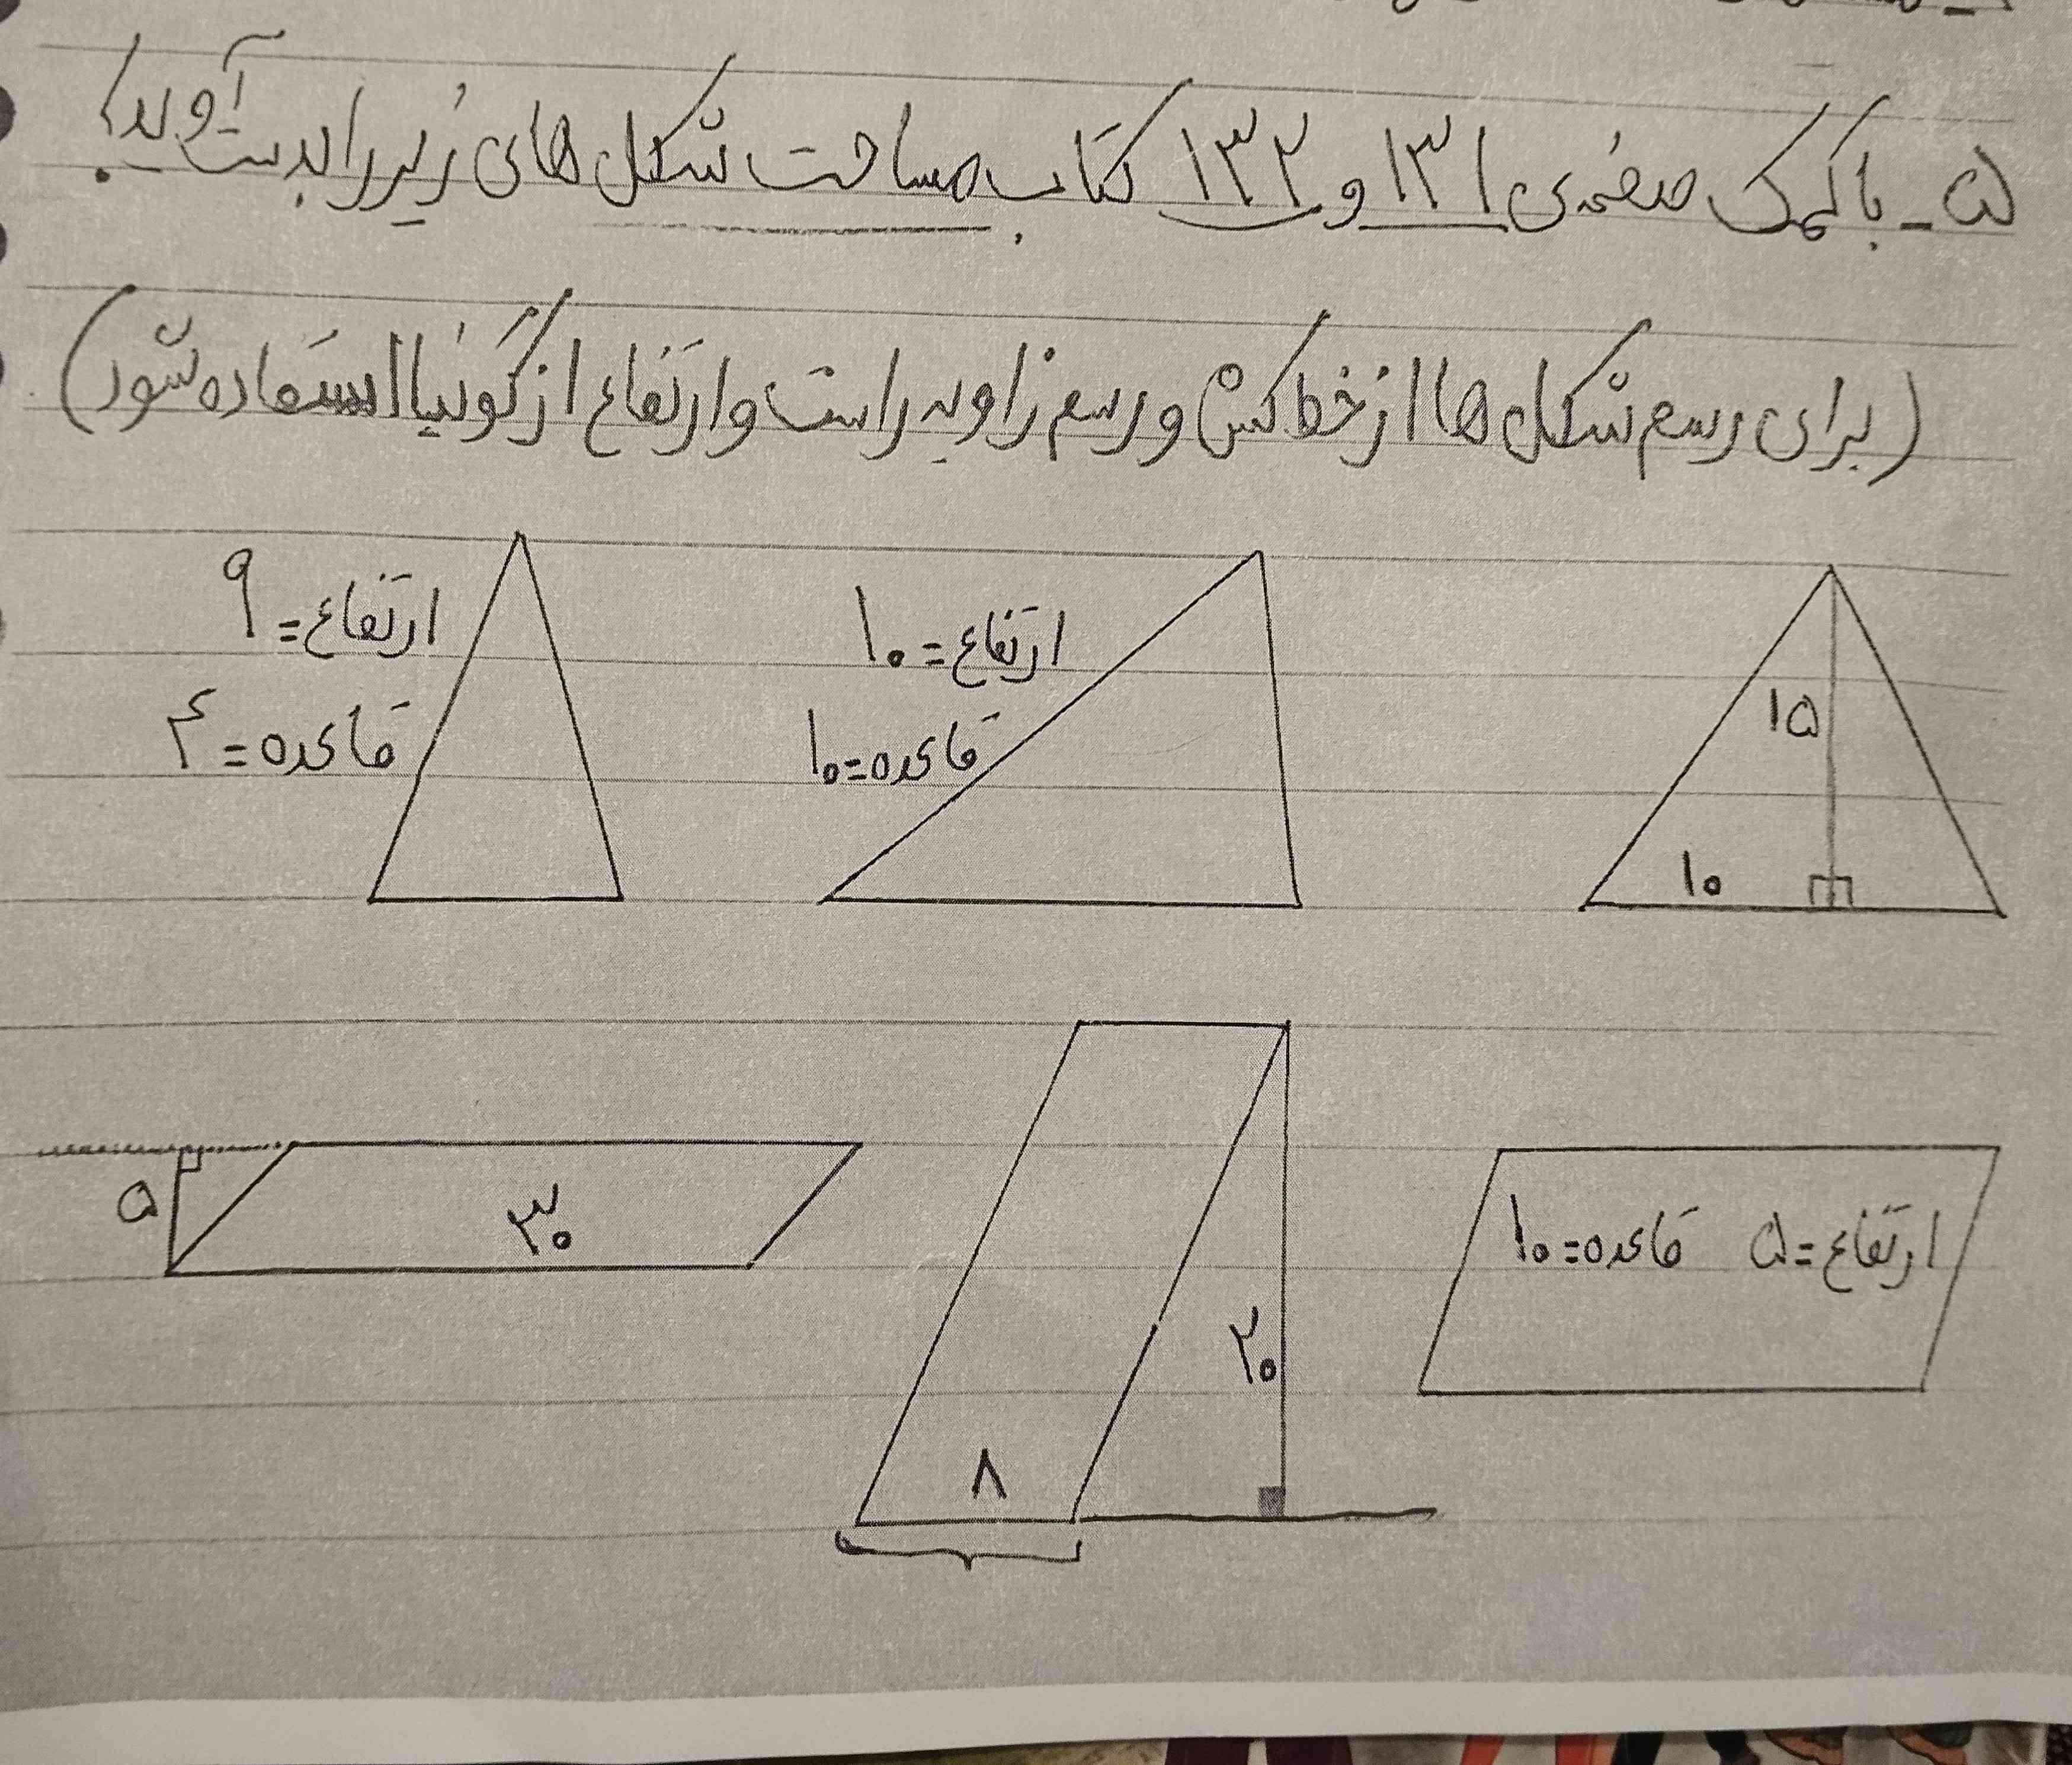 ۵- با کمک صفحه‌ی ۱۳۱ و ۱۳۲ کتاب مساحت شکل های زیر را بدست آورید؟
(برای رسم شکل ها از خط کش و رسم زاویه راست و ارتفاع از گونیا استفاده شود)
۱۵
۱۰
ارتفاع = ۱۰
قاعده = ۱۰
ارتفاع = ۹
قاعده = ۴
ارتفاع = ۵ قاعده = ۱۰
۲۰
۸
۵
۳۰